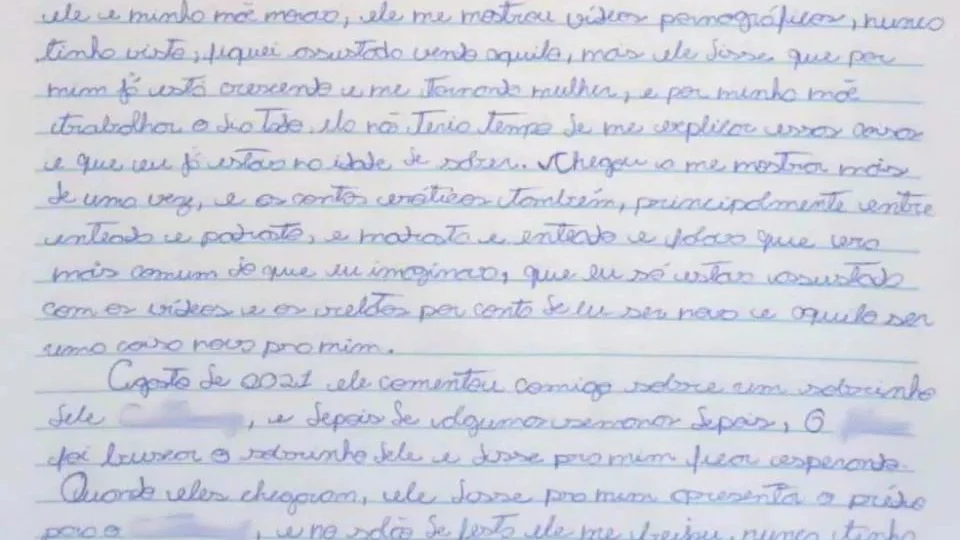 ele e minha mãe morava, ele me mostrou vídeos pornográficos, nunca
tinha visto, fiquei assustada vendo aquilo, mais ele disse que por
mim já está crescendo e me tornando mulher, e por minha mãe
trabalhar o dia todo, ela não teria tempo de me explicar essas coisas
e que eu já estava na idade de saber. Chegou a me mostrar mais
de uma vez, e os contos eróticos também, principalmente entre
enteada e padrasto, e madrasta e enteado e falava que era
mais comum do que eu imaginava, que eu só estava assustada
com os vídeos e os relatos por conta de eu ser nova e aquilo ser
uma coisa nova pra mim.
Agosto de 2021 ele comentou comigo sobre um sobrinho
dele, e depois de algumas semanas depois, O
foi buscar o sobrinho dele e disse pra mim ficar esperando.
Quando eles chegaram, ele disse pra mim apresenta o prédio
para o, e no salão de festa ele me beijou, nunca tinha